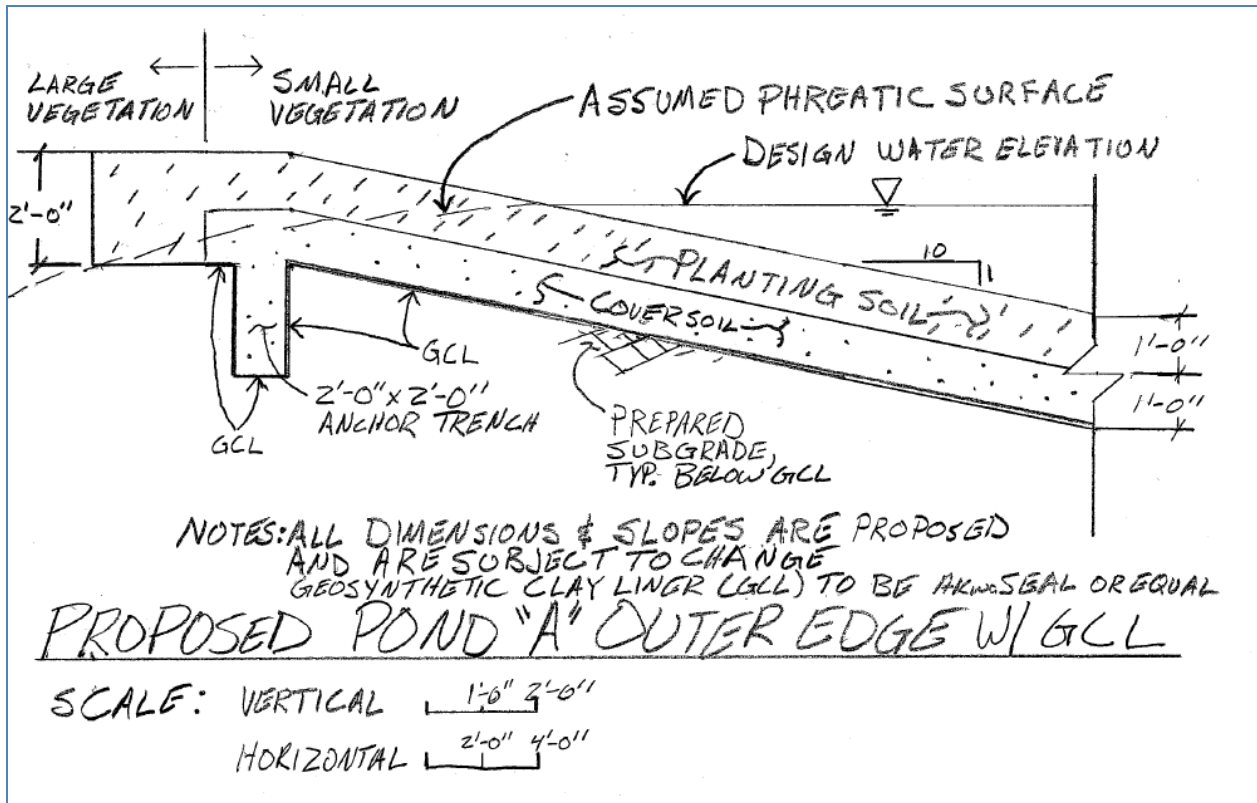 LARGE
VEGETATION
SMALL
VEGETATION
ASSUMED PHREATIC SURFACE
DESIGN WATER ELEVATION
2'-0"
10
1
PLANTING SOIL
COVERSOIL
1'-0"
1'-0"
GCL
2'-0" x 2'-0"
ANCHOR TRENCH
GCL
PREPARED
SUBGRADE,
TYP. BELOW GCL
NOTES: ALL DIMENSIONS & SLOPES ARE PROPOSED
AND ARE SUBJECT TO CHANGE
GEOSYNTHETIC CLAY LINER (GCL) TO BE AKWASEAL OR EQUAL
PROPOSED POND "A" OUTER EDGE W/ GCL
SCALE: VERTICAL 1'-0" 2'-0"
HORIZONTAL 2'-0" 4'-0"